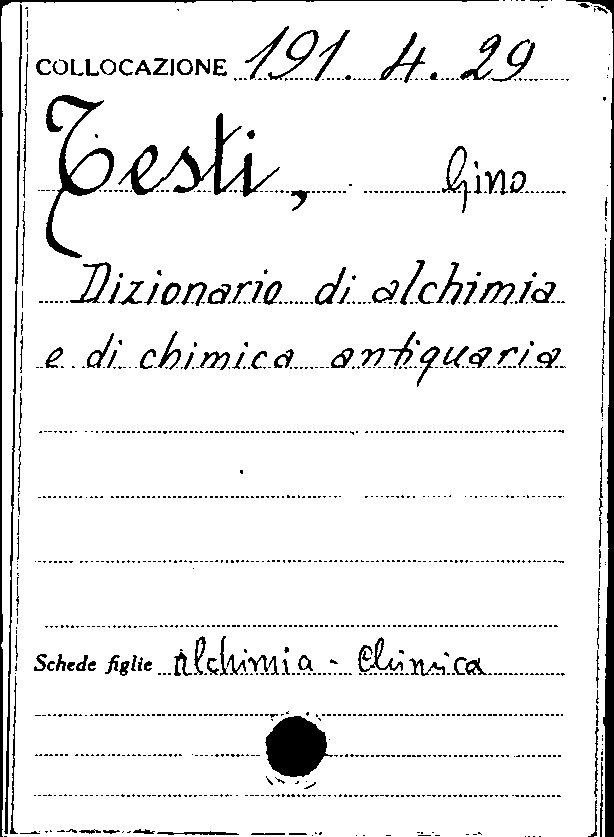 COLLOCAZIONE 191. 4. 29
Testi, Gino
Dizionario di alchimia
e di chimica antiquaria
Schede figlie Alchimia - Chimica